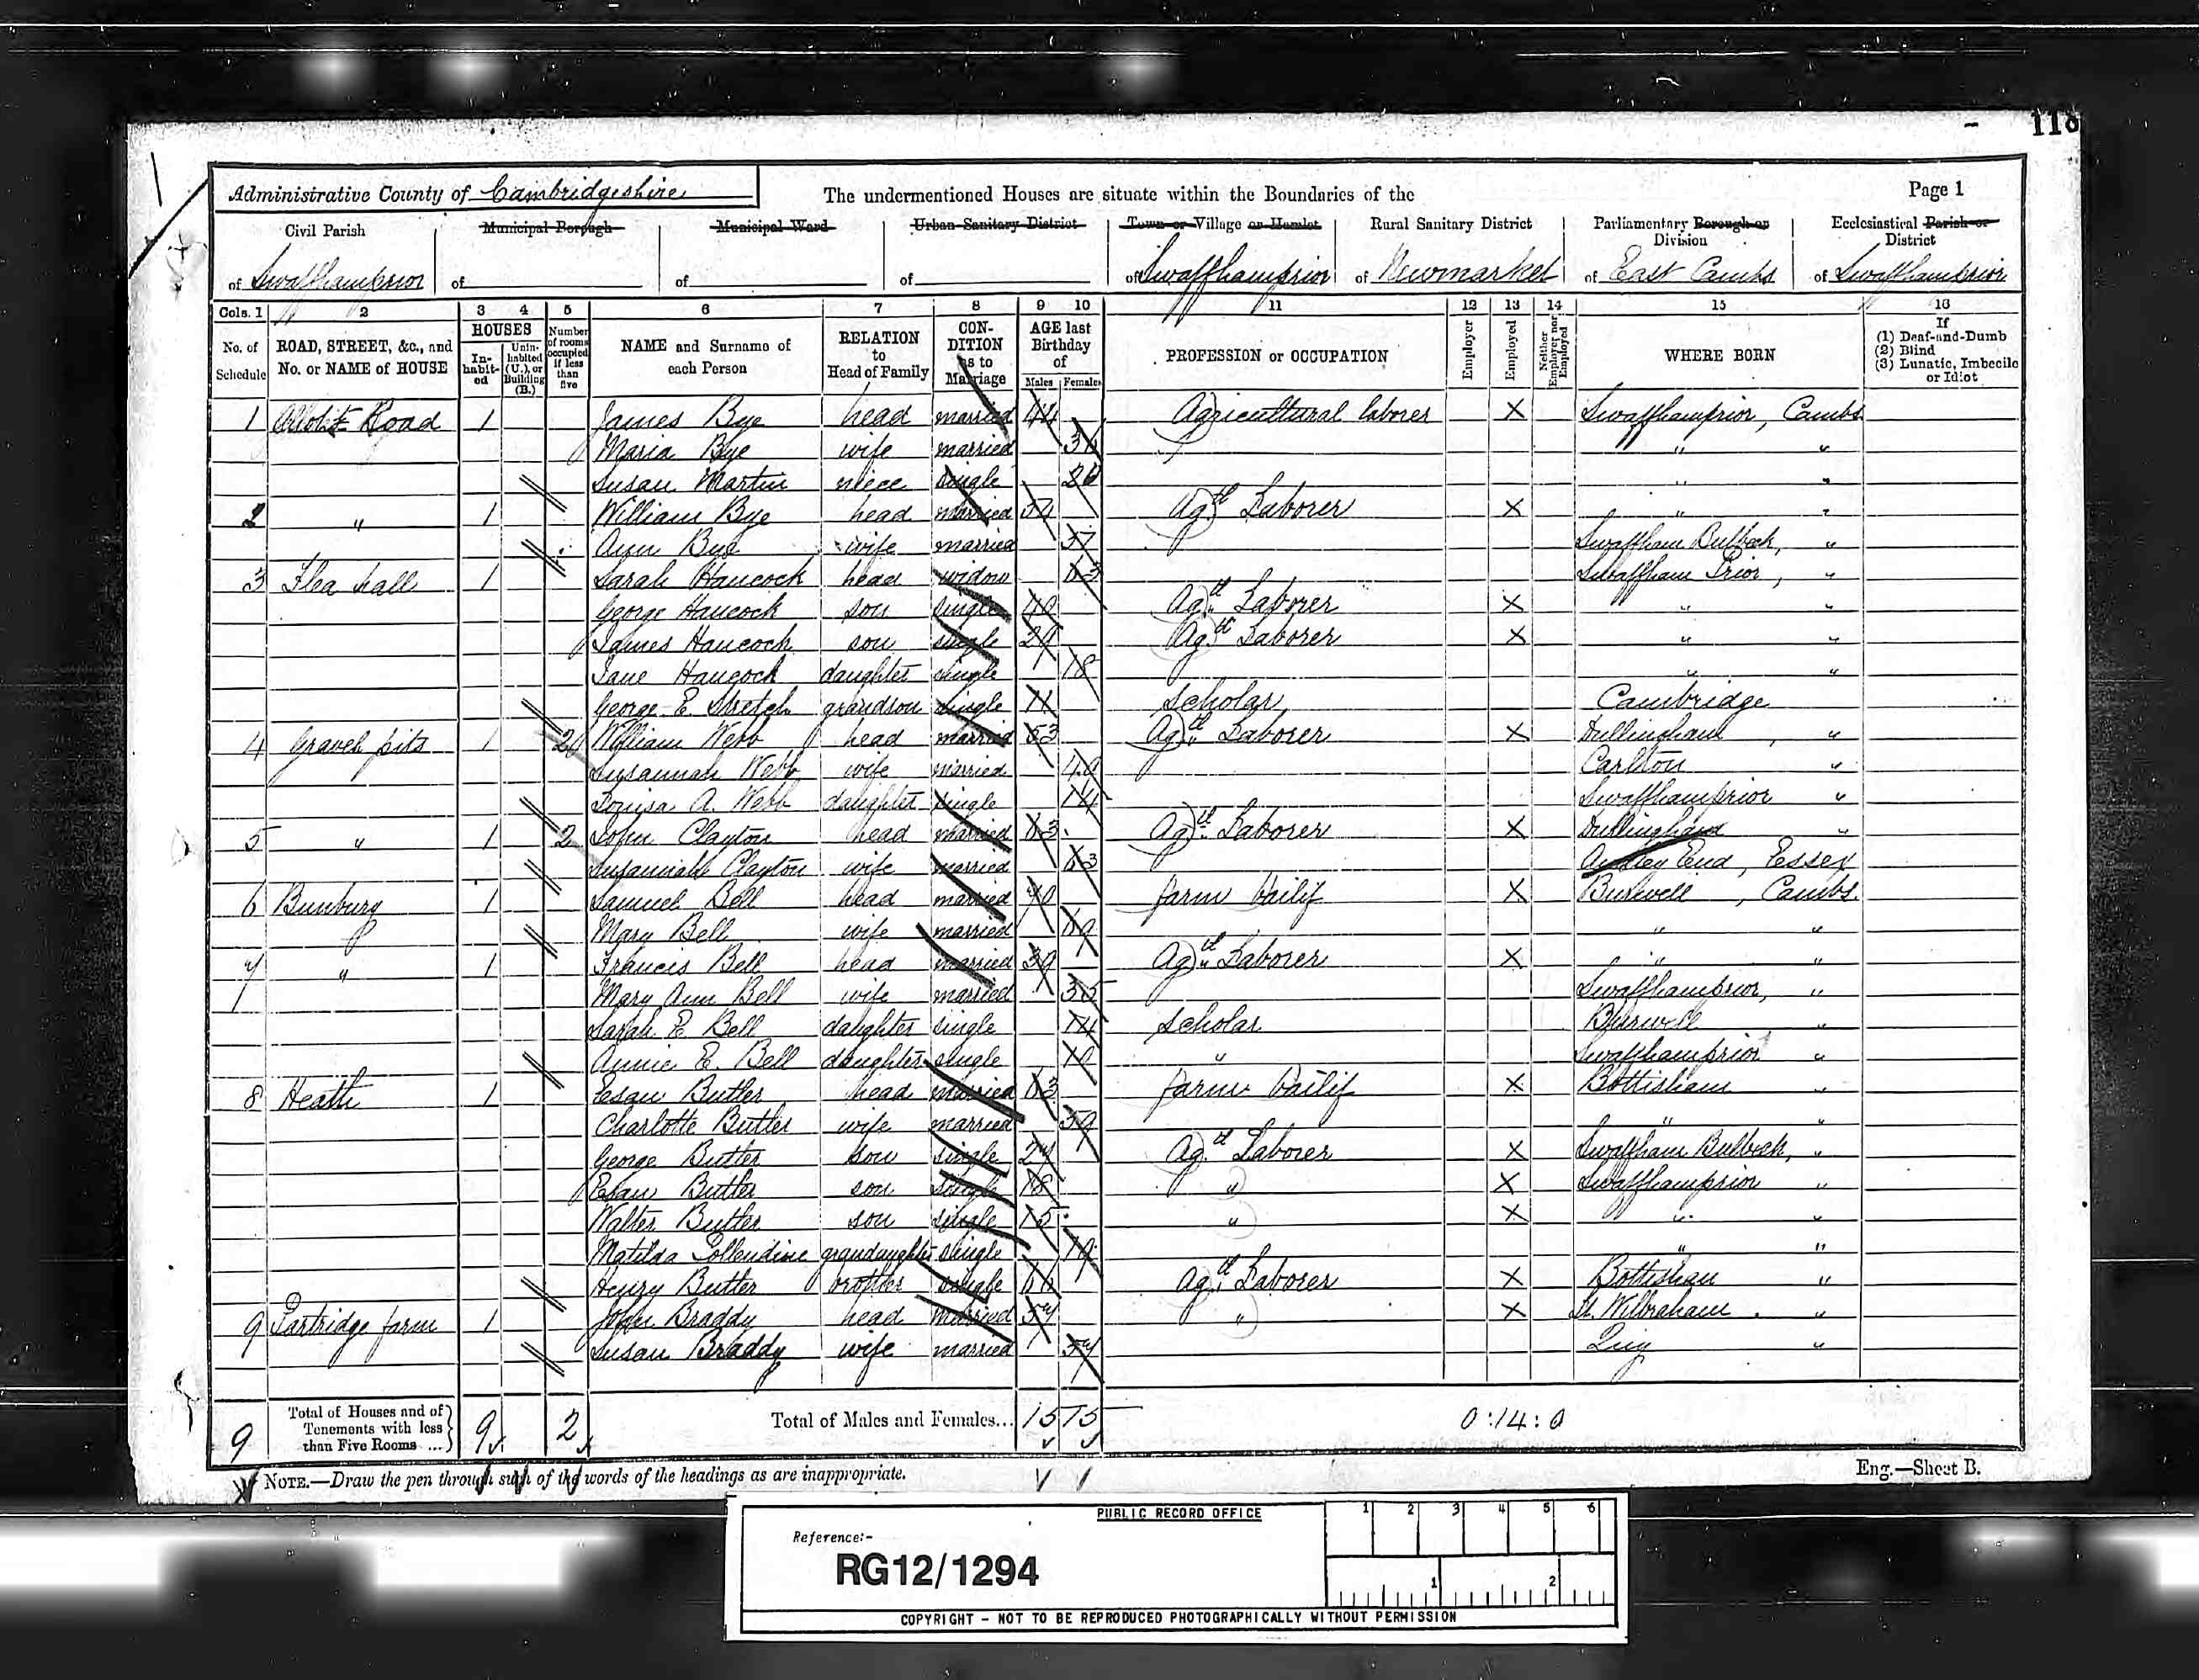 118
Administrative County of Cambridgeshire The undermentioned Houses are situate within the Boundaries of the Page 1
Civil Parish Municipal Borough Municipal Ward Urban Sanitary District Town or Village or Hamlet Rural Sanitary District Parliamentary Borough or Division Ecclesiastical Parish or District
of Swaffhamprior of of of of Swaffhamprior of Newmarket of East Cambs of Swaffhamprior
Cols. 1 2 3 4 5 6 7 8 9 10 11 12 13 14 15 16
No. of Schedule ROAD, STREET, &c., and No. or NAME of HOUSE HOUSES In-habit-ed Unin-habited (U.), or Building (B.) Number of rooms occupied if less than five NAME and Surname of each Person RELATION to Head of Family CON-DITION as to Marriage AGE last Birthday of Males Females PROFESSION or OCCUPATION Employer Employed Neither Employer nor Employed WHERE BORN If (1) Deaf-and-Dumb (2) Blind (3) Lunatic, Imbecile or Idiot
1 Road 1 James Bye head married 44 Agricultural laborer X Swaffhamprior, Cambs
Maria Bye wife married " "
Susan Martin niece single " "
2 " 1 William Bye head married Ag. Laborer X " "
Ann Bye wife married 57 Swaffham Bulbeck, "
3 Flea hall 1 Sarah Hancock head widow 63 Swaffham Prior, "
George Hancock son single Ag. Laborer X " "
James Hancock son single Ag. Laborer X " "
Jane Hancock daughter single 18 " "
George E. Stretch grandson single 11 scholar Cambridge
4 Gravel pits 1 2 William Webb head married 53 Ag. Laborer X Dullingham, "
Susannah Webb wife married Carlton "
Louisa A. Webb daughter single 14 Swaffhamprior "
5 " 1 2 John Clayton head married 63 Ag. Laborer X Dullingham "
Susannah Clayton wife married 63 Audley End, Essex
6 Bunbury 1 Samuel Bell head married farm bailif X Burwell, Cambs.
Mary Bell wife married " "
7 " 1 Francis Bell head married 39 Ag. Laborer X " "
Mary Ann Bell wife married 35 Swaffhamprior, "
Sarah E Bell daughter single 14 scholar Burwell "
Annie E. Bell daughter single 10 " Swaffhamprior "
8 Heath 1 Esau Butler head married 63 farm bailif X Bottisham "
Charlotte Butler wife married 59 " "
George Butler son single 27 Ag. Laborer X Swaffham Bulbeck, "
Esau Butler son single 18 " X Swaffhamprior "
Walter Butler son single 15 " X " "
Matilda grandaughter single " "
Henry Butler brother single Ag. Laborer X Bottisham "
9 Partridge farm 1 John Braddy head married 57 " X Wilbraham "
Susan Braddy wife married 57 Quy "
9 Total of Houses and of Tenements with less than Five Rooms ... 9 2 Total of Males and Females... 15 15 0:14:0
NOTE.—Draw the pen through such of the words of the headings as are inappropriate. Eng.—Sheet B.
PUBLIC RECORD OFFICE 1 2 3 4 5 6
Reference:-
RG12/1294 1 2
COPYRIGHT - NOT TO BE REPRODUCED PHOTOGRAPHICALLY WITHOUT PERMISSION